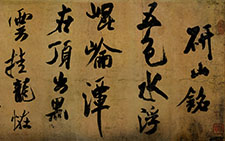 研山銘
五色水浮
崐崘潭
在頂出黑
雲挂龍怪